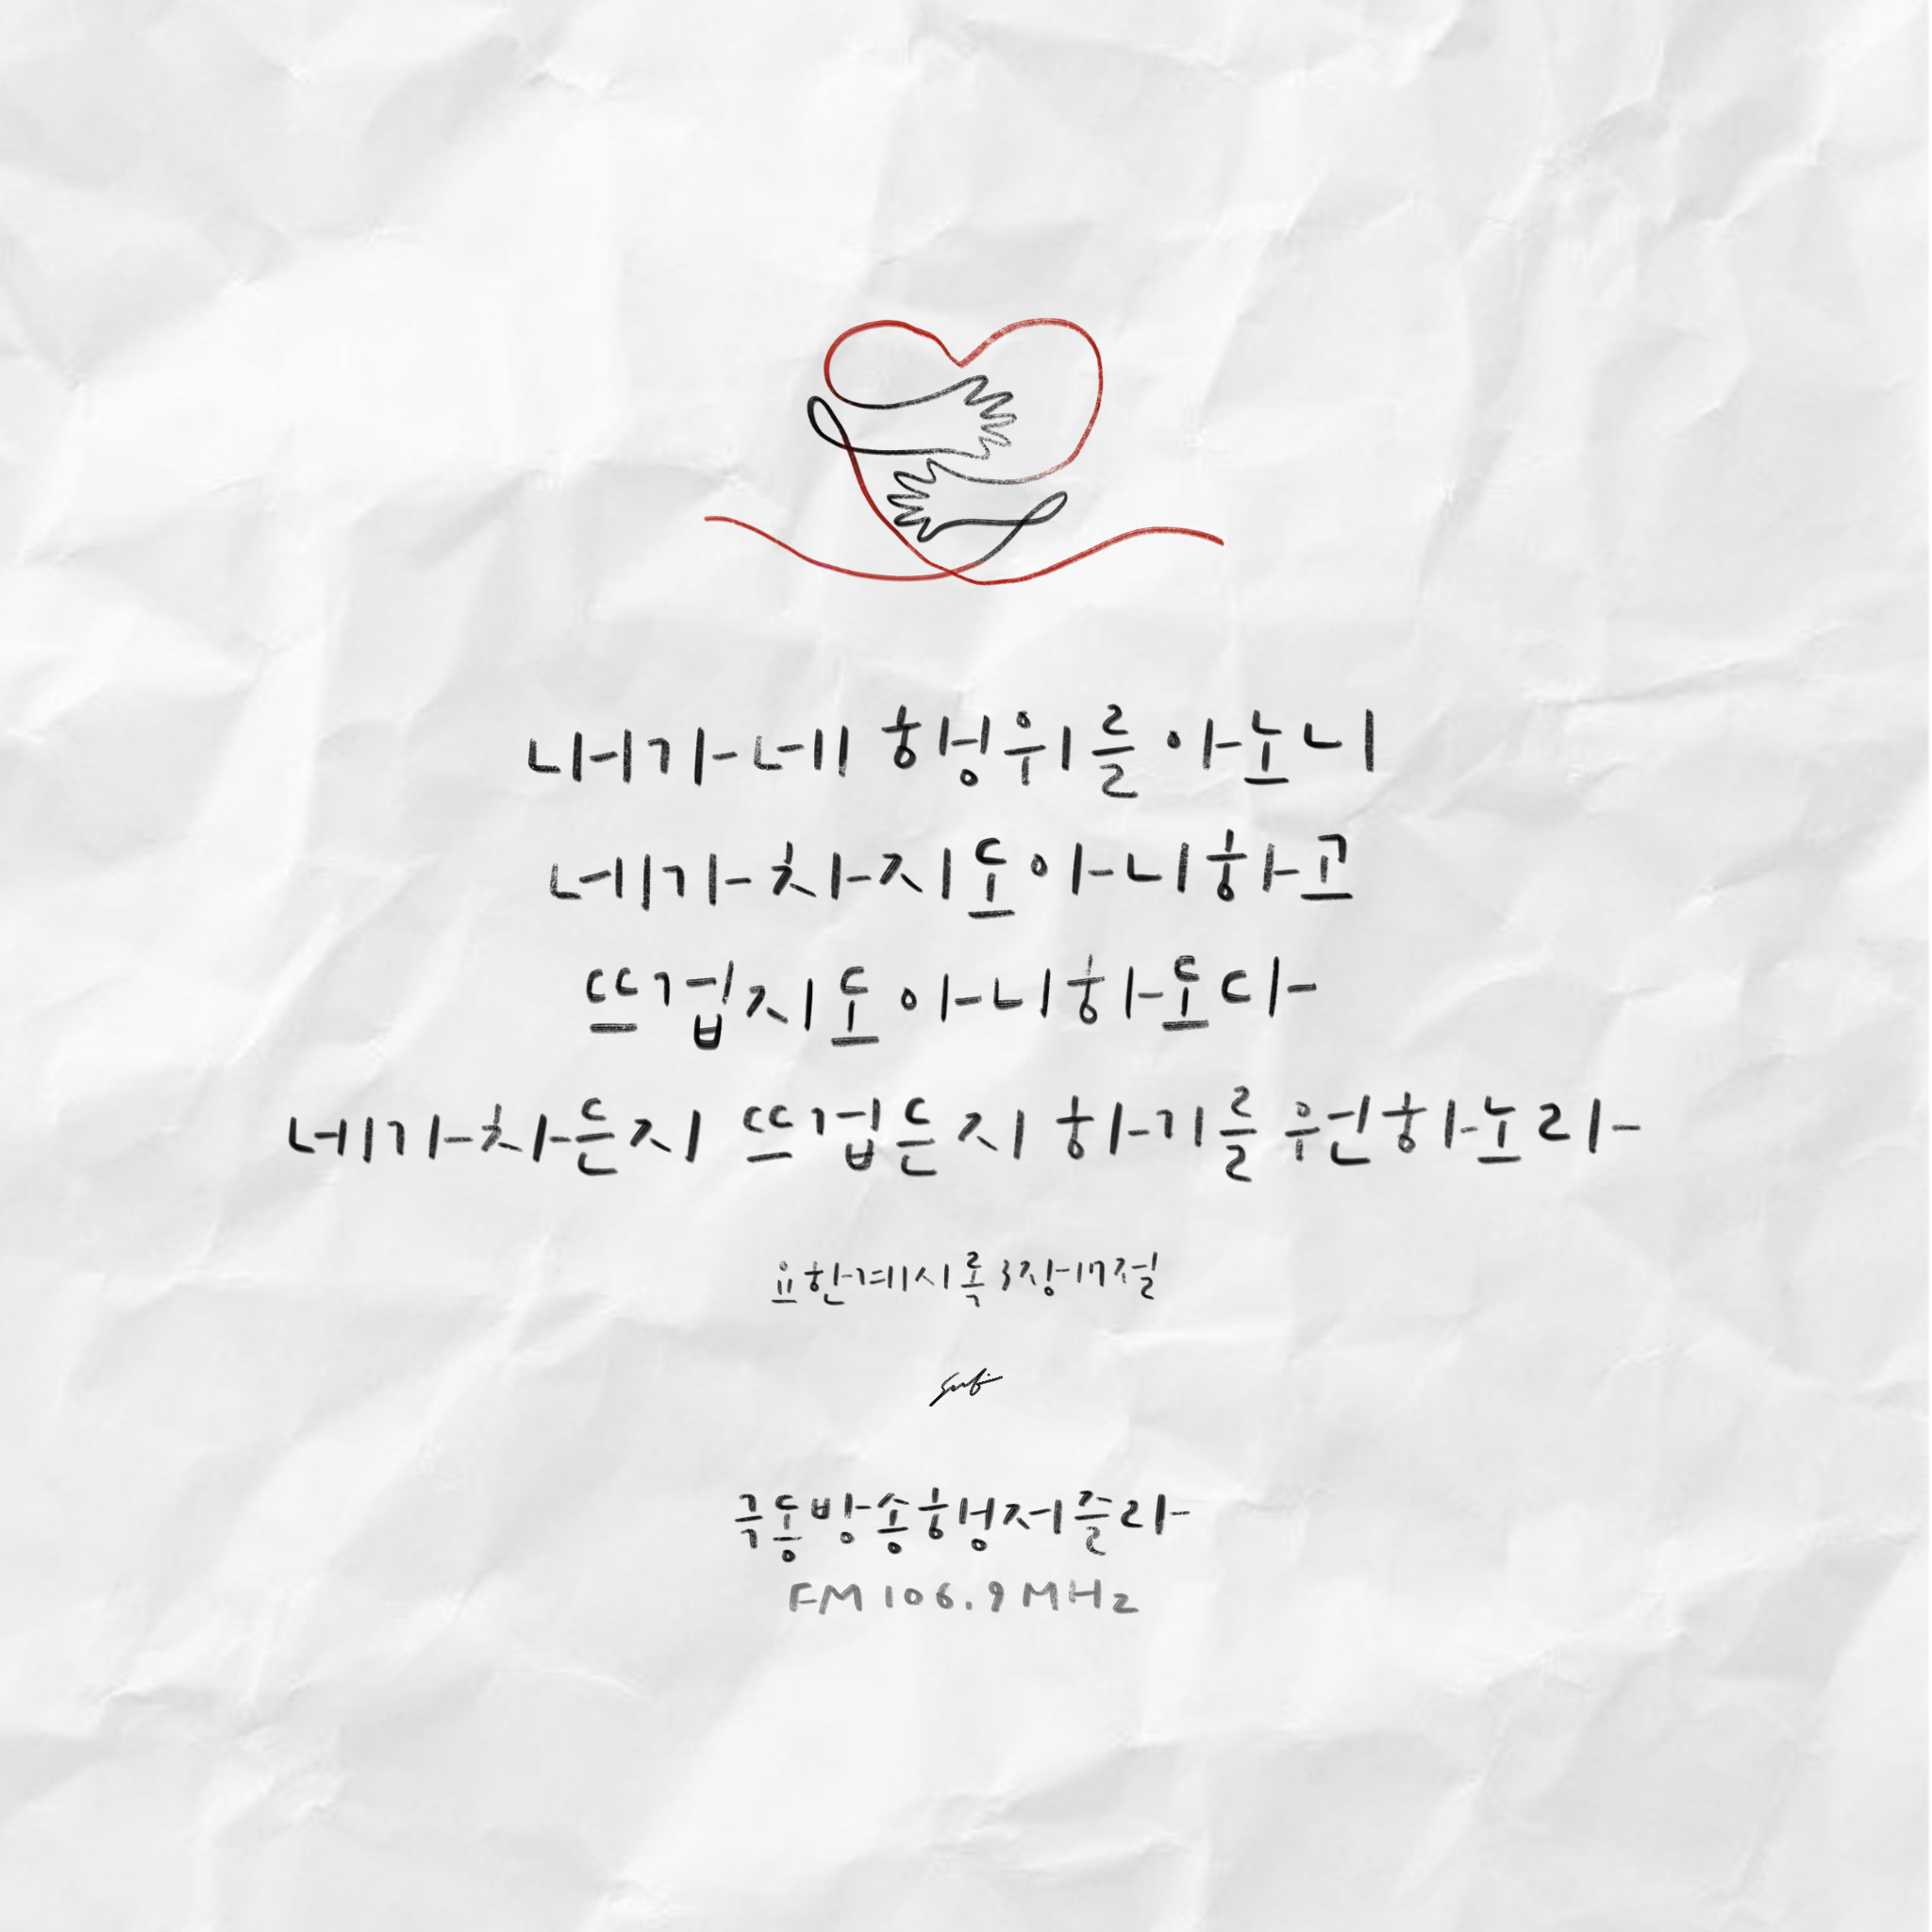 내가 네 행위를 아노니
네가 차지도 아니하고
뜨겁지도 아니하도다
네가 차든지 뜨겁든지 하기를 원하노라
요한계시록 3장 17절
극동방송 헝제즐라
FM 106.9 MHz